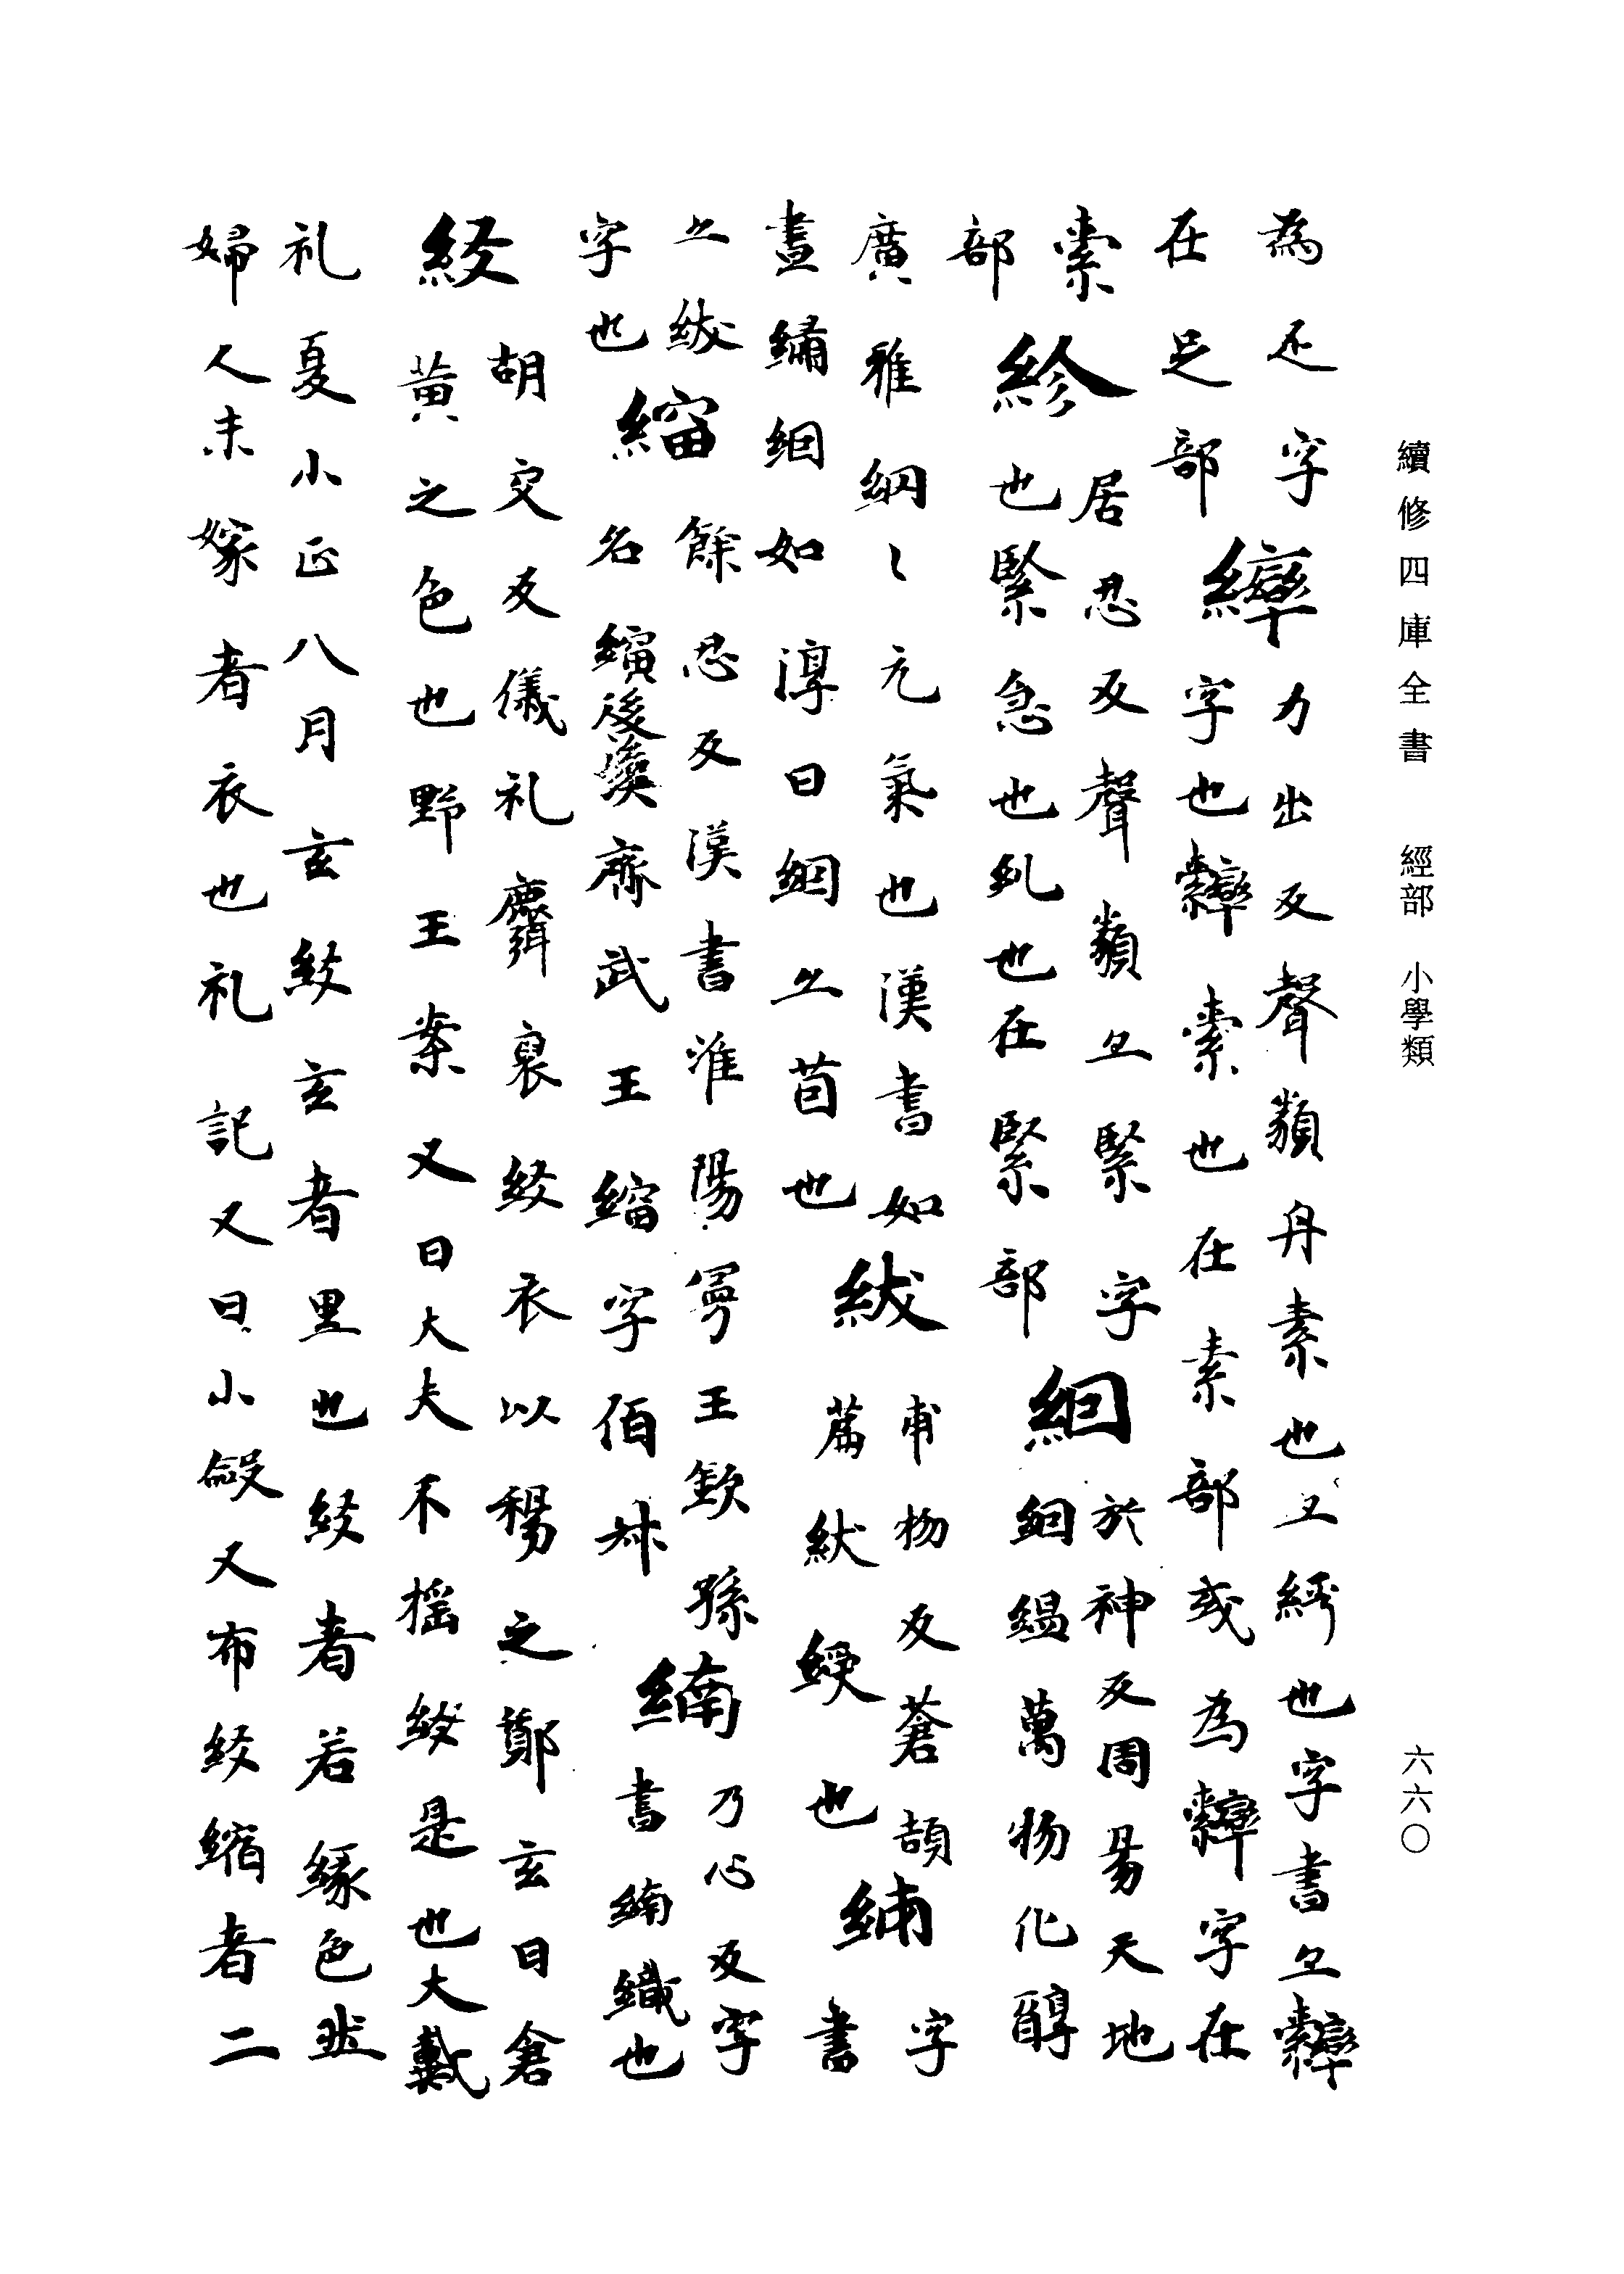 續修四庫全書 經部 小學類 六六〇
為疋字繂力出反聲類舟素也又綍也字書亦
在疋部字也索也在素部或為字在
索居忍反聲類亦緊字於神反周易天地
部紾也緊急也糺也在緊部絪絪縕萬物化醇
廣雅絪〻元氣也漢書如紱甫物反蒼頡字
畫繡絪如淳曰絪亦茵也篇紱綬也書
亦紱餘忍反漢書淮陽寧王欽孫乃心反字
字也名縯後漢齊武王縮字伯升書織也
絞胡交反儀礼麛裘絞衣以裼之鄭玄曰倉
黃之色也野王案又曰大夫不揺絞是也大戴
礼夏小正八月玄紋玄者黑也絞者若緣色然
婦人未嫁者衣也礼記又曰小斂又布絞縮者二